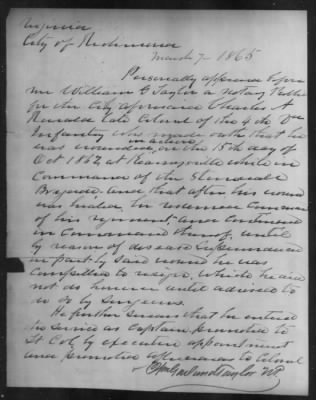 Virginia
City of Richmond
March 7 - 1865
Personally appeared before
me William G Taylor a Notary Public
for the City aforesaid Charles A
Ronald late Colonel of the 4th Va
Infantry who made oath that he
was wounded in action on the 15th day of
Oct 1862 at Kearneysville while in
Command of the Stonewall
Brigade and that after his wound
was healed, he resumed Command
of his regiment, and continued
in Command thereof, until
by reason of disease superinduced
in part by said wound he was
Compelled to resign, which he did
not do however until advised to
do so by Surgeons.
He further swears that he entered
the service as Captain, promoted to
Lt Col by executive appointment
and promoted afterwards to Colonel
NP